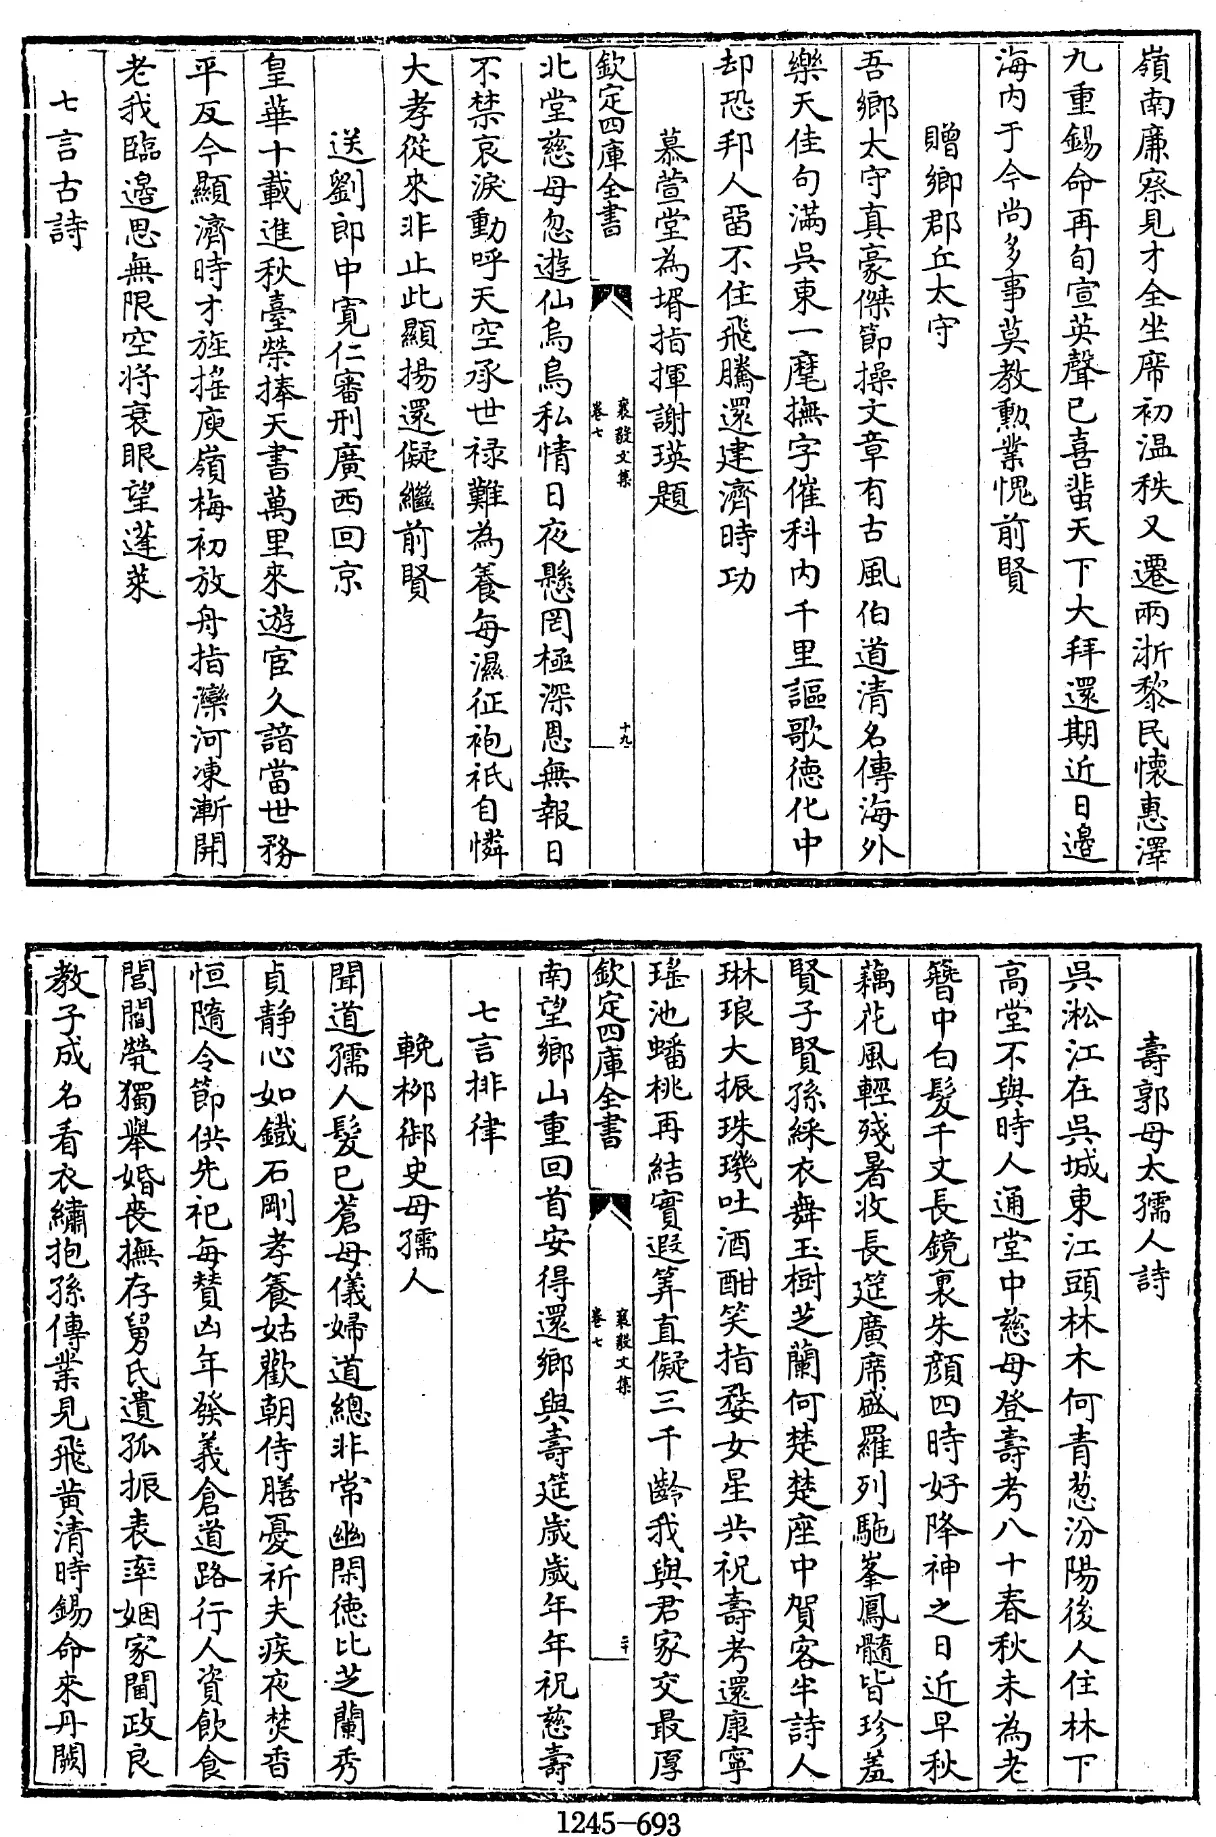 嶺南廉察見才全坐席初温秩又遷兩浙黎民懷惠澤
九重錫命再旬宣英聲已喜蜚天下大拜還期近日邊
海内于今尚多事莫教勲業愧前賢
贈鄉郡丘太守
吾鄉太守真豪傑節操文章有古風伯道清名傳海外
樂天佳句滿吳東一麾撫字催科内千里謳歌徳化中
却恐邦人畱不住飛騰還建濟時功
慕萱堂為壻指揮謝瑛題
欽定四庫全書
襄毅文集
卷七
十九
北堂慈母忽遊仙烏鳥私情日夜懸罔極深恩無報日
不禁哀淚動呼天空承世禄難為養每濕征袍祇自憐
大孝從來非止此顯揚還儗繼前賢
送劉郎中寛仁審刑廣西回京
皇華十載進秋臺榮捧天書萬里來遊宦久諳當世務
平反今顯濟時才旌揺庾嶺梅初放舟指灤河凍漸開
老我臨邉思無限空将衰眼望蓬萊
七言古詩
壽郭母太孺人詩
吳淞江在吳城東江頭林木何青葱汾陽後人住林下
高堂不與時人通堂中慈母登壽考八十春秋未為老
簪中白髪千丈長鏡裏朱顔四時好降神之日近早秋
藕花風輕殘暑收長筵廣席盛羅列駞峯鳳髓皆珍羞
賢子賢孫綵衣舞玉樹芝蘭何楚楚座中賀客半詩人
琳琅大振珠璣吐酒酣笑指婺女星共祝壽考還康寧
瑤池蟠桃再結實遐筭直儗三千齡我與君家交最厚
欽定四庫全書
襄毅文集
卷七
二十
南望鄉山重回首安得還鄉與壽筵歲歲年年祝慈壽
七言排律
輓柳御史母孺人
聞道孺人髮已蒼母儀婦道總非常幽閑徳比芝蘭秀
貞靜心如鐵石剛孝養姑歡朝侍膳憂祈夫疾夜焚香
恒隨令節供先祀每賛凶年發義倉道路行人資飲食
閭閻煢獨舉婚喪撫存舅氏遺孤振表率姻家閫政良
教子成名看衣繡抱孫傳業見飛黄清時錫命來丹闕
1245-693